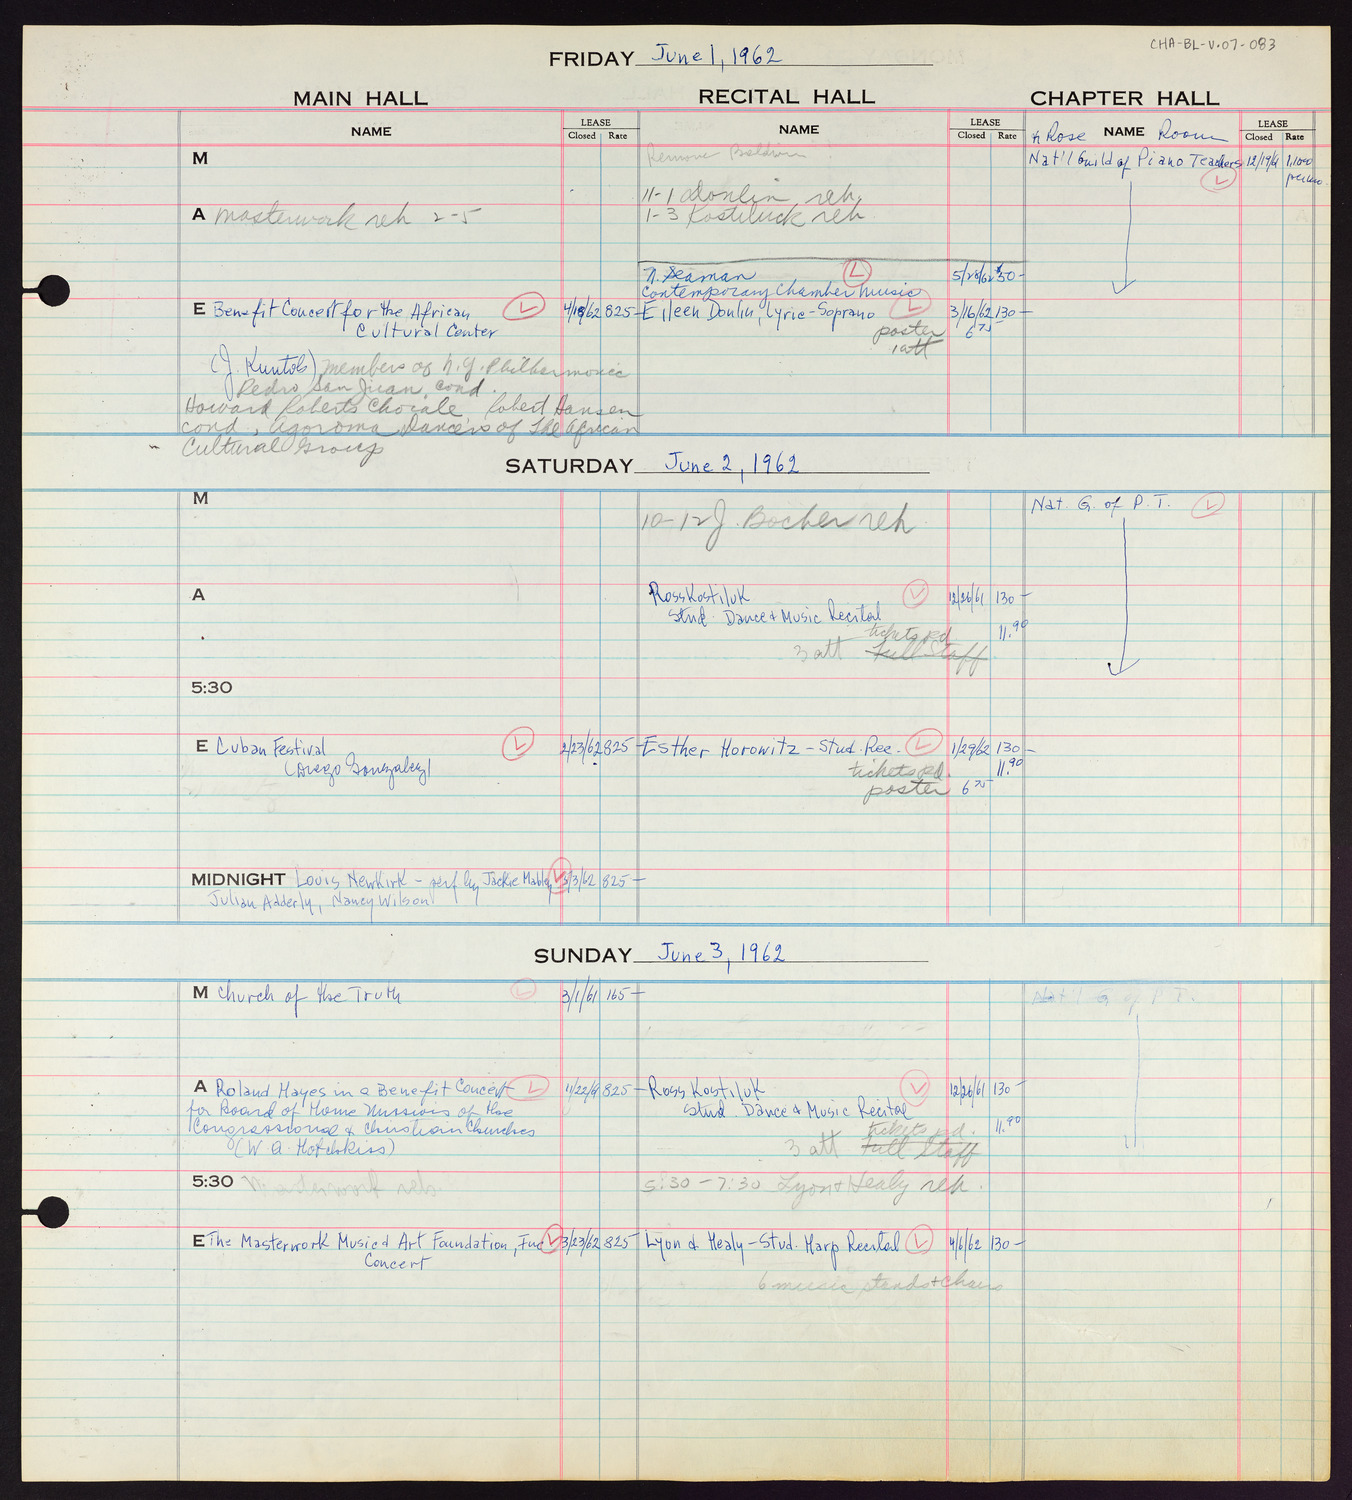 CHA-BL-V.07-083
FRIDAY June 1, 1962
MAIN HALL RECITAL HALL CHAPTER HALL
NAME LEASE Closed Rate NAME LEASE Closed Rate & Rose NAME Room LEASE Closed Rate
M Remove Baldwin Nat'l Guild of Piano Teachers 12/19/61 1,1000
L
11-1 Donlin reh
A Masterwork reh 2-5 1-3 Kostiluck reh
N. Seaman L 5/28/62 $50-
Contemporary Chamber Music
E Benefit Concert for the African L 4/18/62 825- Eileen Donlin, Lyric-Soprano L 3/16/62 130-
Cultural Center poster 6 75
1 att
(J. Kuntols) members of N.Y. Philharmonic
Pedro San Juan, cond.
Howard Roberts Chorale, Robert Hansen
cond, Agoroma Dancers of The African
Cultural Group
SATURDAY June 2, 1962
M Nat. G. of P.T. L
10-12 J. Bocher reh
A Ross Kostiluk L 12/26/61 130-
Stud. Dance & Music Recital
tickets pd 11.90
3 att Full Staff
5:30
E Cuban Festival L 2/23/62 825- Esther Horowitz - Stud. Rec. L 1/29/62 130-
(Diego Gonzalez) tickets pd. 11.90
poster 6 75
MIDNIGHT Louis Newkirk - perf by Jackie Mabley L 3/3/62 825-
Julian Adderly, Nancy Wilson
SUNDAY June 3, 1962
M Church of the Truth L 3/1/61 165- Nat'l G of P T.
A Roland Hayes in a Benefit Concert L 11/22/61 825- Ross Kostiluk L 12/26/61 130-
for Board of Home Missions of the Stud Dance & Music Recital
Congressional & Christian Churches tickets pd. 11.90
(W. A. Hotchkiss) 3 att Full Staff
5:30 Masterwork reh. 5:30-7:30 Lyon & Healy reh.
E The Masterwork Music & Art Foundation, Inc L 3/23/62 825- Lyon & Healy - Stud. Harp Recital L 4/6/62 130-
Concert
6 music stands + chairs